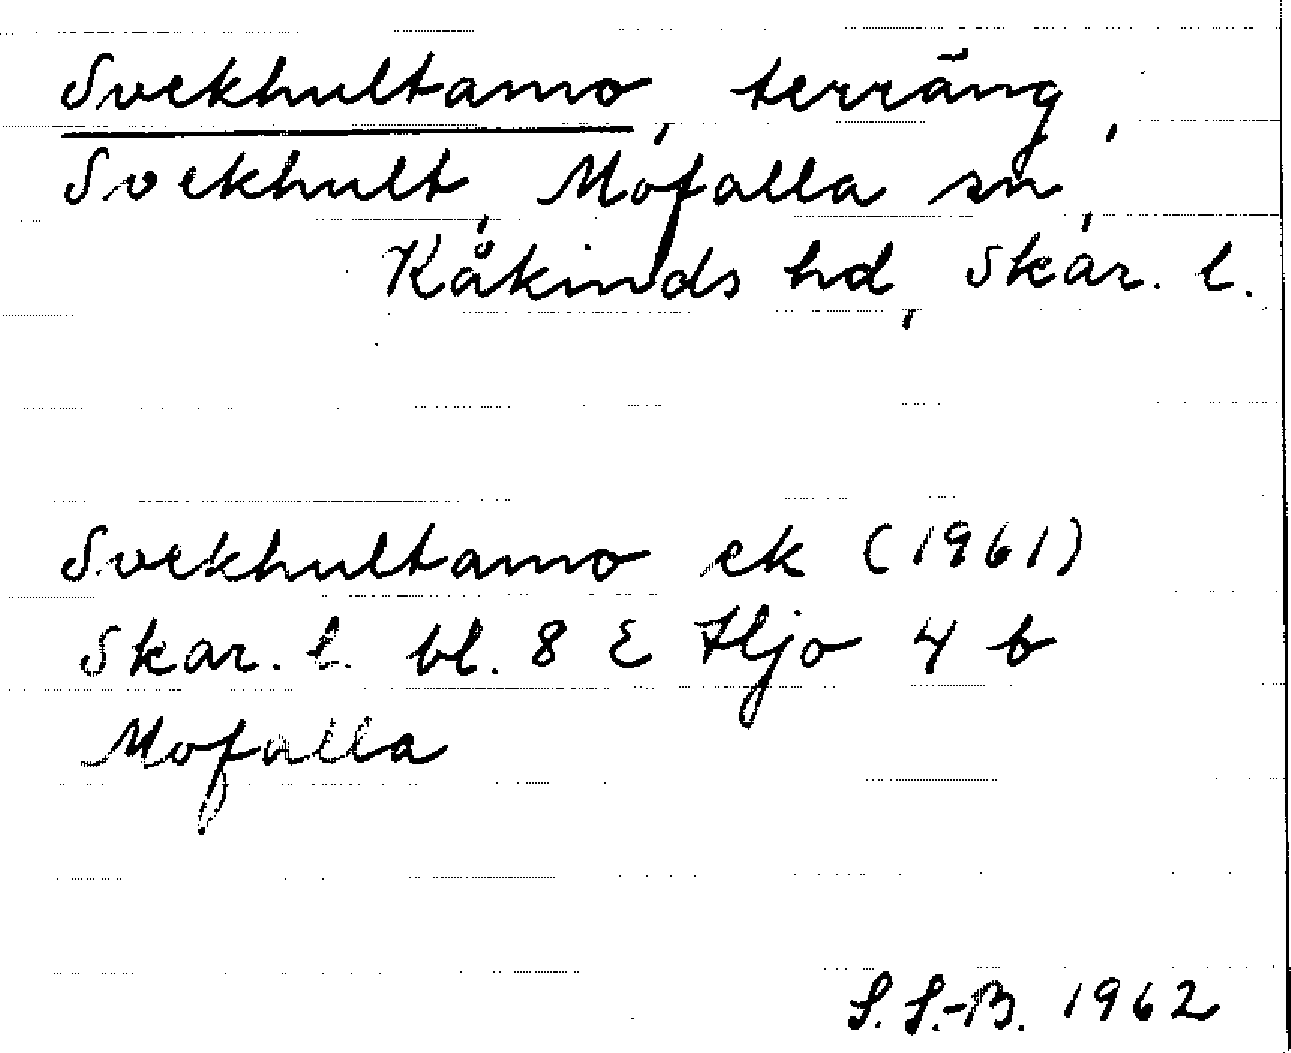 Svekhultamo, terräng,
Svekhult, Mofalla sn,
Kåkinds hd, Skar. l.
Svekhultamo ek (1961)
Skar. l. bl. 8 E Hjo 4 b
Mofalla
S. S.-B. 1962